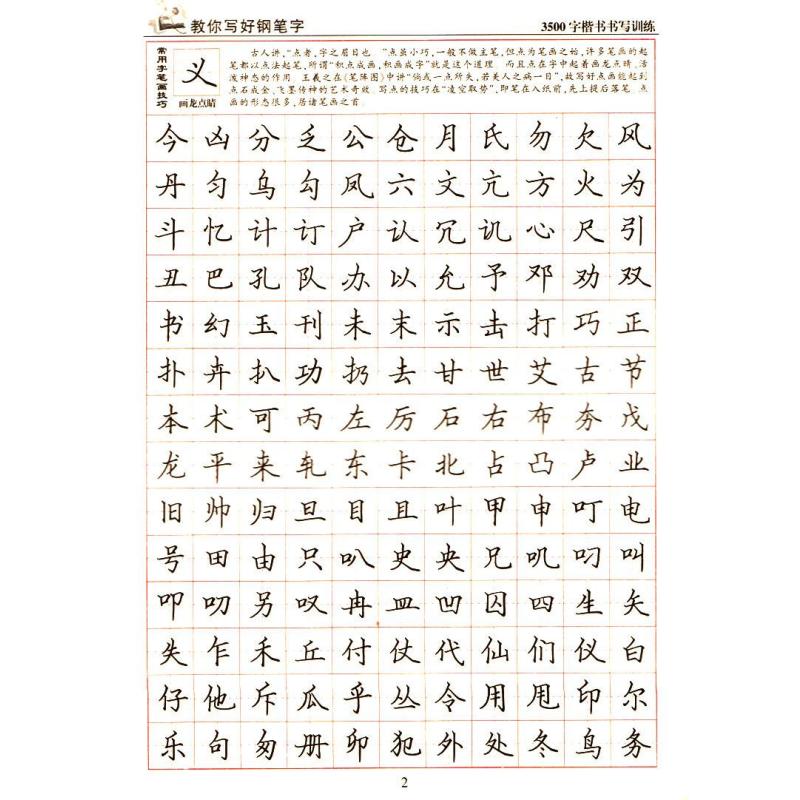 教你写好钢笔字
3500字楷书书写训练
常用字笔画技巧
义
画龙点睛
古人讲，“点者，字之眉目也。”点虽小巧，一般不做主笔，但点为笔画之始，许多笔画的起
笔都以点法起笔，所谓“积点成画，积画成字”就是这个道理。而且点在字中起着画龙点睛、活
泼神态的作用。王羲之在《笔阵图》中讲“倘或一点所失，若美人之病一目”，故写好点画能起到
点石成金、飞墨传神的艺术奇效。写点的技巧在“凌空取势”，即笔在入纸前，先上提后落笔。点
画的形态很多，居诸笔画之首。
今凶分乏公仓月氏勿欠风
丹匀乌勾凤六文亢方火为
斗忆计订户认冗讥心尺引
丑巴孔队办以允予邓劝双
书幻玉刊未末示击打巧正
扑卉扒功扔去甘世艾古节
本术可丙左厉石右布夯戊
龙平来轧东卡北占凸卢业
旧帅归旦目且叶甲申叮电
号田由只叭史央兄叽叼叫
叩叨另叹冉皿凹囚四生矢
失乍禾丘付仗代仙们仪白
仔他斥瓜乎丛令用甩印尔
乐句匆册卯犯外处冬鸟务
2